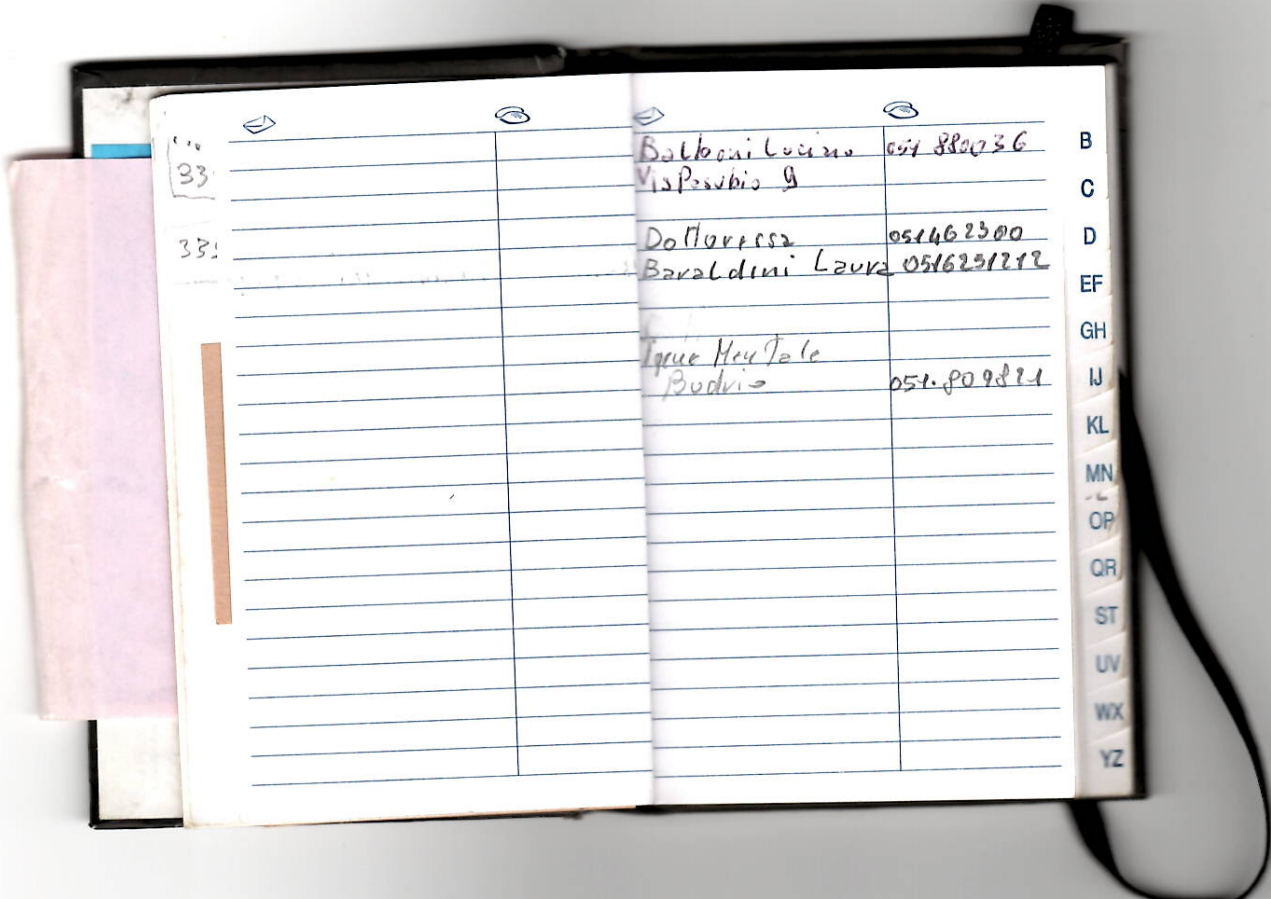 33
33
Balboni Luciano 051 880036
Via Pasubio 9
Dottoressa 051462300
Baraldini Laura 0516251212
Igene Mentale
Budrio 051.809821
B
C
D
EF
GH
IJ
KL
MN
OP
QR
ST
UV
WX
YZ